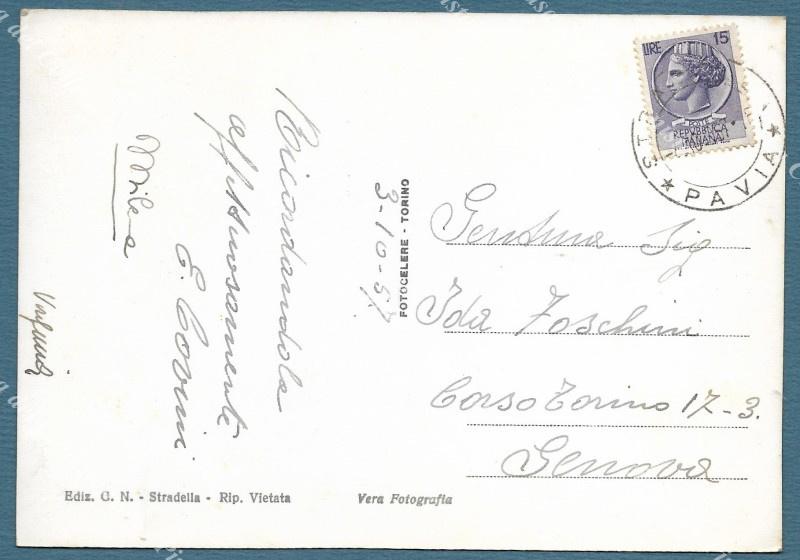 LIRE 15
POSTE
REPUBBLICA
ITALIANA
PAVIA
Ricordandola
affettuosamente
E. Covini
Milena
3-10-57
FOTOCELERE - TORINO
Gentma Sig
Ida Foschini
Corso Torino 17-3.
Genova
Ediz. G. N. - Stradella - Rip. Vietata
Vera Fotografia